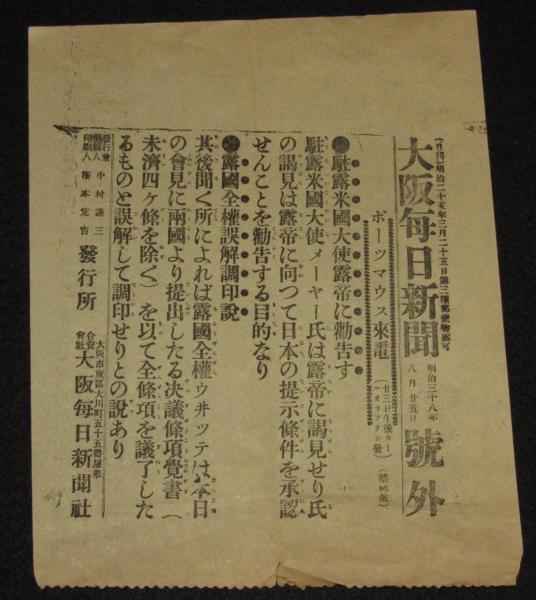 (日刊)明治二十五年三月二十五日第三種郵便物認可
大阪每日新聞 明治三十八年八月廿五日 號外
ポーツマウス來電
(廿三日午後カールオラフリン發)
●駐露米國大使露帝に勸告す
駐露米國大使メーヤー氏は露帝に謁見せり氏
の謁見は露帝に向つて日本の提示條件を承認
せんことを勸告する目的なり
●露國全權誤解調印說
其後聞く所によれば露國全權ウヰッテは本日
の會見に兩國より提出したる决議條項覺書(
未濟四ケ條を除く)を以て全條項を議了した
るものと誤解して調印せりとの說あり
發行兼編輯人 中村謙三
印刷人 定吉
發行所
大阪市東區大川町五十五番屋敷
合資會社 大阪每日新聞社